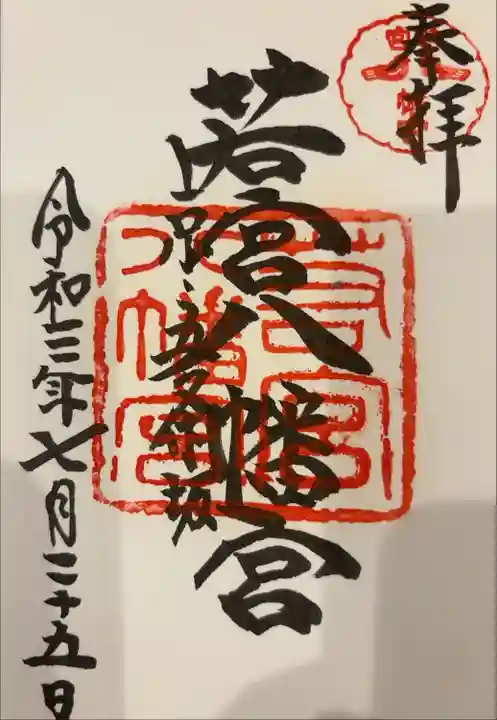 奉拝
若宮八幡宮
五條坂
令和三年七月二十五日
若宮
八幡宮